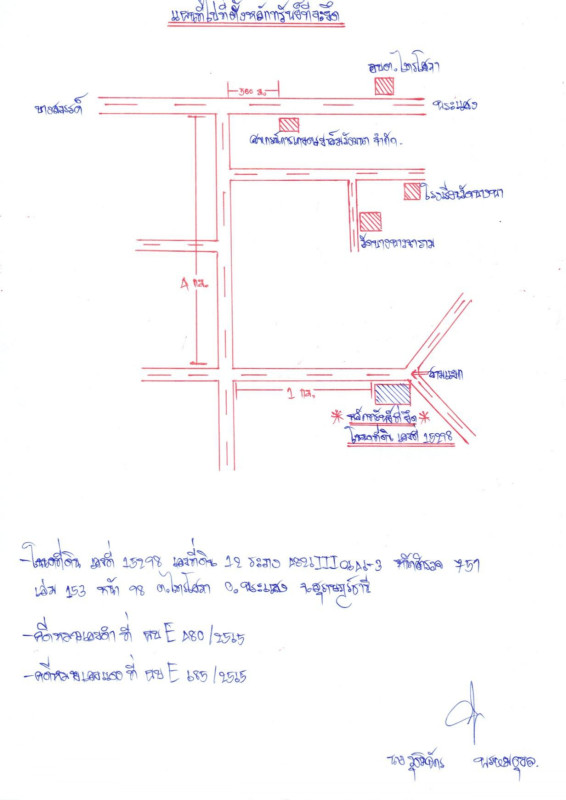 แผนที่ไปที่ตั้งหลักทรัพย์ที่จะยึด
อบต.ไทรโสภา
300 ม.
บางสวรรค์
พระแสง
สหกรณ์การเกษตร จำกัด.
โรงเรียนวัดบางพา
วัดบางพาราม
4 กม.
สามแยก
1 กม.
* หลักทรัพย์ที่ยึด *
โฉนดที่ดิน เลขที่ 15298
- โฉนดที่ดิน เลขที่ 15298 เลขที่ดิน 12 ระวาง III หน้าสำรวจ 751
เล่ม 153 หน้า 98 ต.ไทรโสภา อ.พระแสง จ.สุราษฎร์ธานี
- คดีหมายเลขดำ ที่ ผบ E 480/2565
- คดีหมายเลขแดง ที่ ผบ E 685/2565